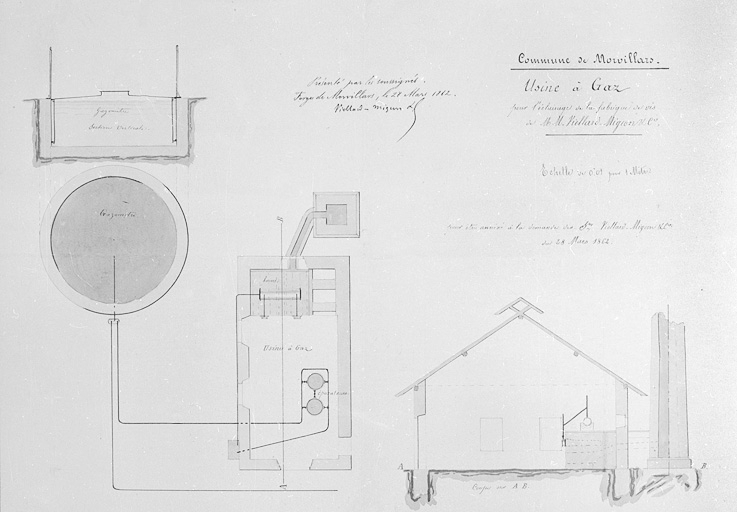 Commune de Morvillars.
Usine à Gaz
pour l'éclairage de la fabrique de vis
de M.M. Viellard, Migeon & Cie
Echelle de 0m01 pour 1 Mètre
pour être annexé à la demande des Srs Viellard, Migeon & Cie
du 28 Mars 1862
Présenté par les soussignés.
Forges de Morvillars, le 28 Mars 1862.
Viellard-Migeon &
Gazomètre
Section Verticale
Gazomètre
Four
Usine à Gaz
A
B
Coupe sur A B.